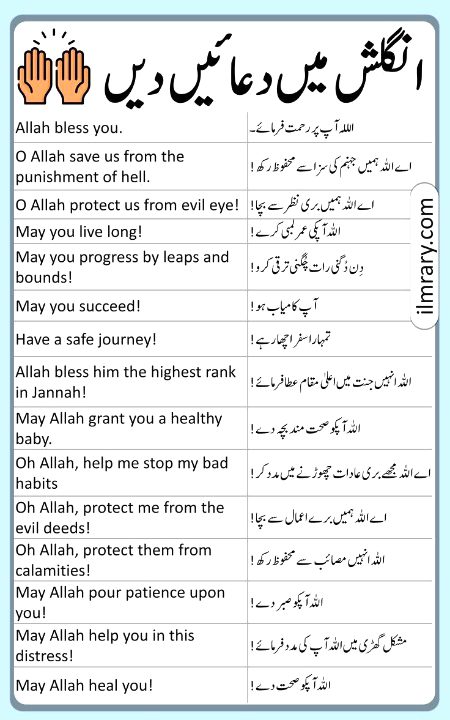 انگلش میں دعائیں دیں
Allah bless you.
اللہ آپ پر رحمت فرمائے۔
O Allah save us from the
punishment of hell.
اے اللہ ہمیں جہنم کی سزا سے محفوظ رکھ!
O Allah protect us from evil eye!
اے اللہ ہمیں بری نظر سے بچا!
May you live long!
اللہ آپکی عمر لمبی کرے!
May you progress by leaps and
bounds!
دِن دُگنی رات چُگنی ترقی کرو!
May you succeed!
آپ کامیاب ہو!
Have a safe journey!
تمہارا سفر اچھا رہے!
Allah bless him the highest rank
in Jannah!
اللہ انہیں جنت میں اعلیٰ مقام عطا فرمائے!
May Allah grant you a healthy
baby.
اللہ آپکو صحت مند بچہ دے!
Oh Allah, help me stop my bad
habits
اے اللہ مجھے بری عادات چھوڑنے میں مدد کر!
Oh Allah, protect me from the
evil deeds!
اے اللہ ہمیں برے اعمال سے بچا!
Oh Allah, protect them from
calamities!
اللہ انہیں مصائب سے محفوظ رکھ!
May Allah pour patience upon
you!
اللہ آپکو صبر دے!
May Allah help you in this
distress!
مشکل گھڑی میں اللہ آپ کی مدد فرمائے!
May Allah heal you!
اللہ آپکو صحت دے!
ilmrary.com